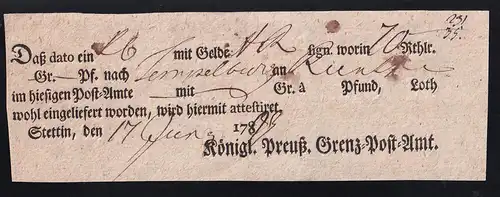 Daß dato ein mit Gelde: sgn. worin 70 Rthlr.
Gr. Pf. nach Tempelburg an
im hiesigen Post-Amte mit Gr. à Pfund, Loth
wohl eingeliefert worden, wird hiermit attestiret.
Stettin, den 17 Juny 178
Königl. Preuß. Grenz-Post-Amt.